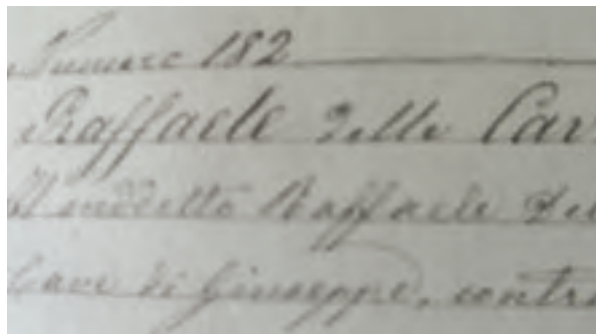 Numero 182
Raffaele delle Cav
Il suddetto Raffaele del
Cave di Giuseppe, contr